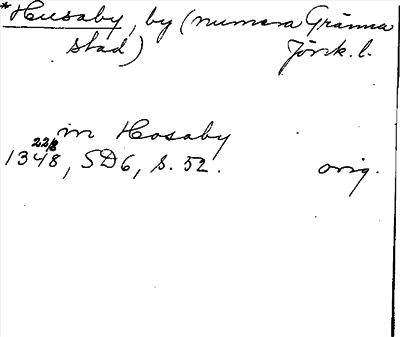 *Husaby, by (numera Gränna
stad) Jönk. l.
in Hosaby
22/8
1348, SD6, s. 52. orig.